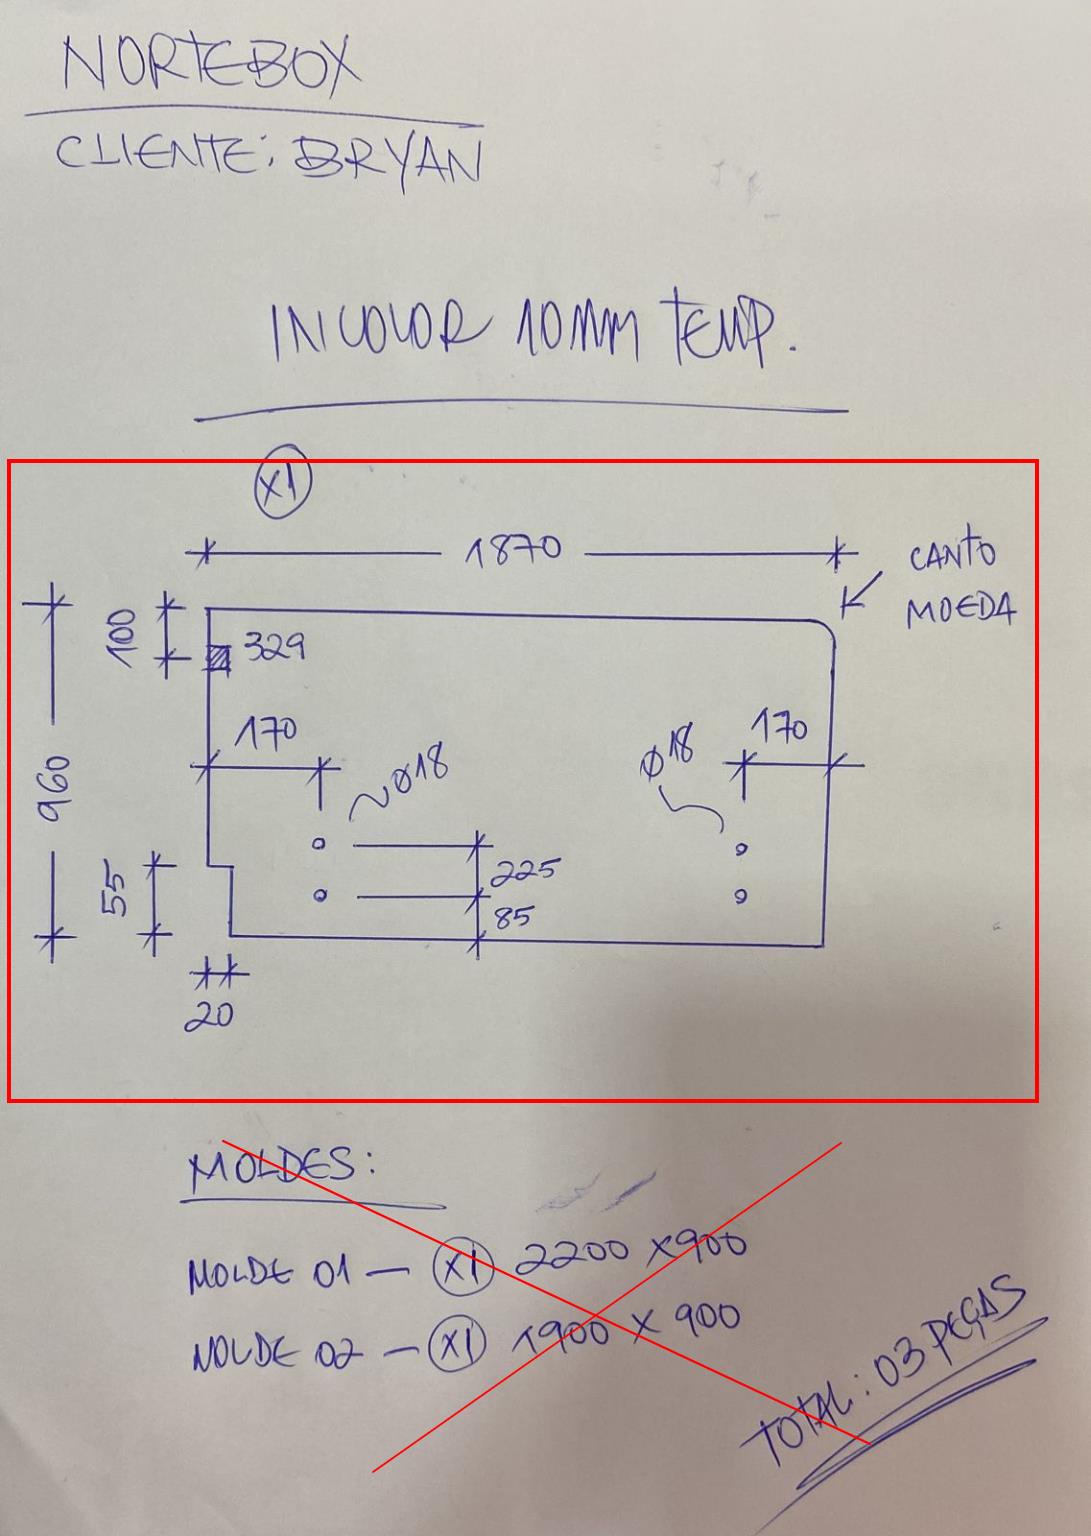 NORTEBOX
CLIENTE: BRYAN
INCOLOR 10MM TEMP.
X1
1870
CANTO
MOEDA
100
329
170
170
Ø18
Ø18
960
225
55
85
20
MOLDES:
MOLDE 01 — X1 2200 X 900
MOLDE 02 — X1 1900 X 900
TOTAL: 03 PEÇAS